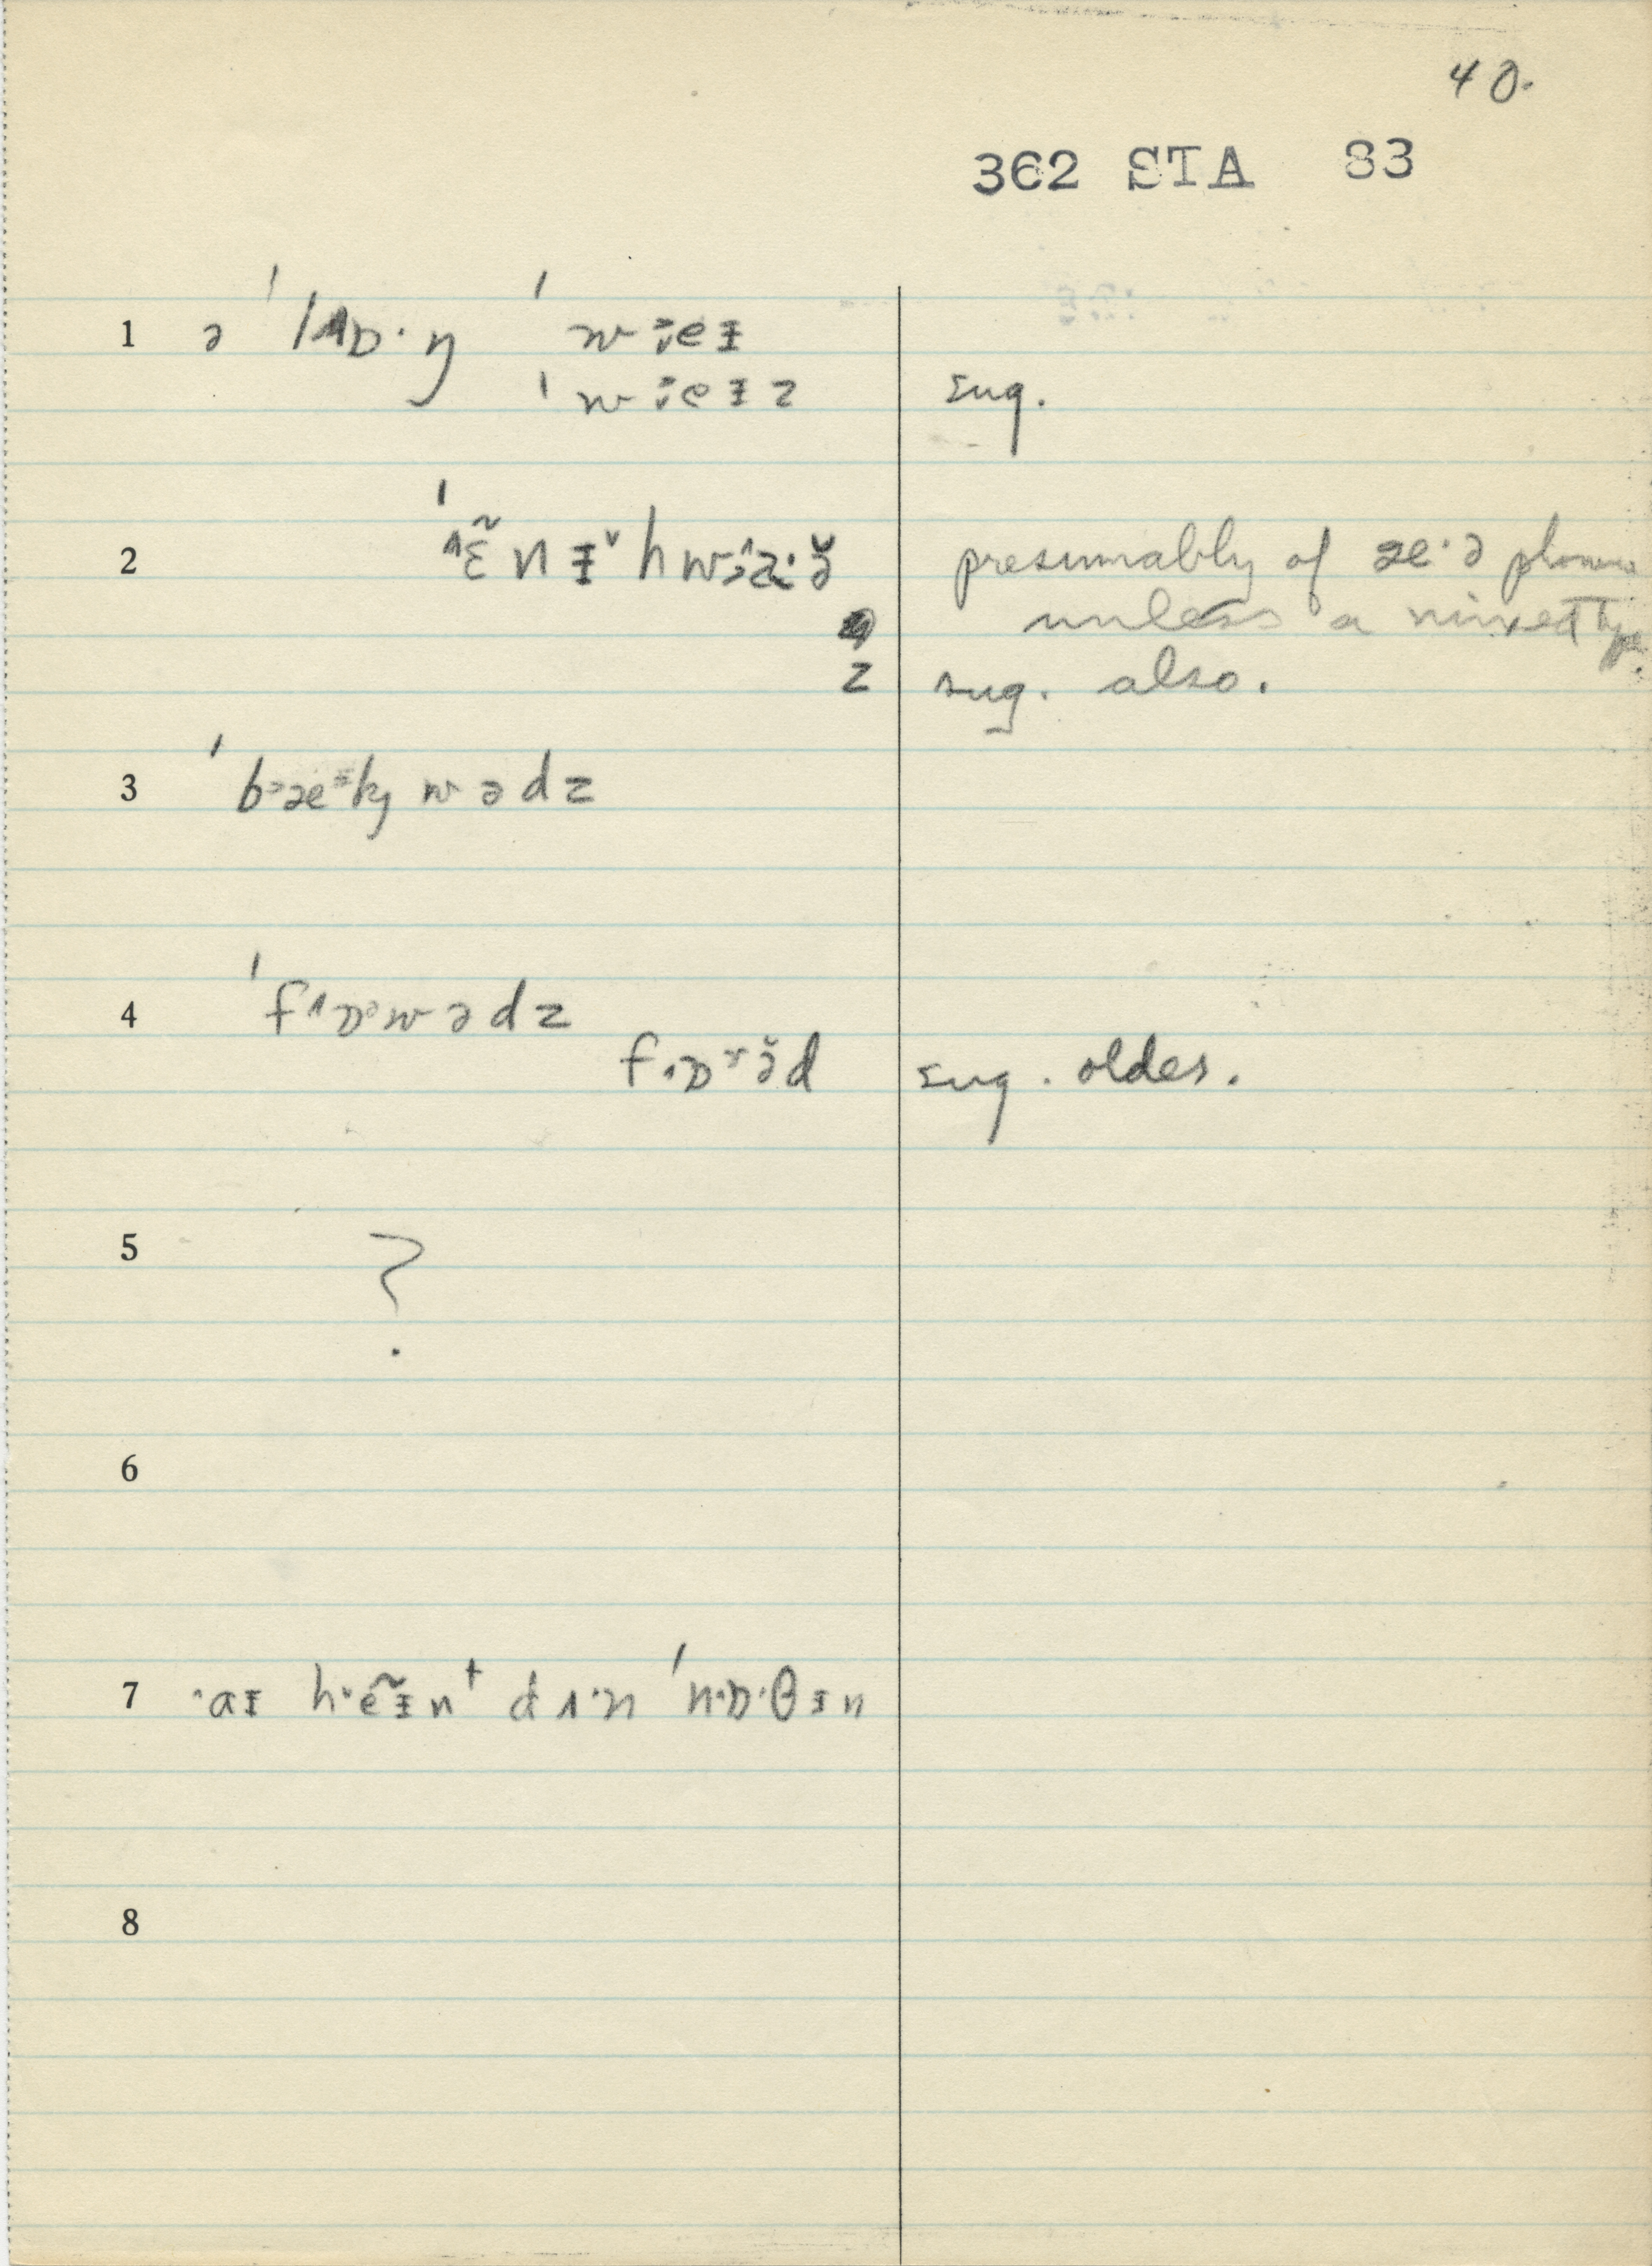 40.
362 STA 83
1 ə ˈlɒ·ŋ ˈw eᵻ
ˈw eᵻz sug.
2 ˈɛ̃nᵻ˅hw ə̆ presumably of æ·ə phoneme
unless a mixed type.
z sug. also.
3 ˈbæky wədz
4 ˈfɒwədz
fɒə̆d sug. older.
5 ?
6
7 ·aᵻ h·ẽᵻn⁺ dʌ·n ˈn·ɒ·θᵻn
8